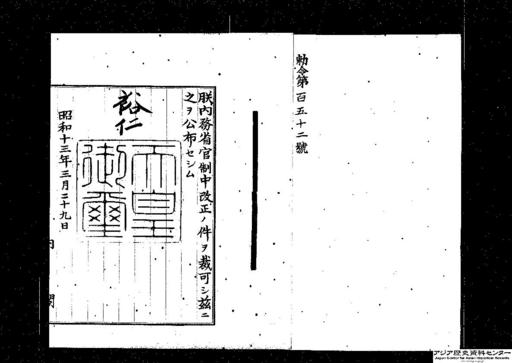 勅令第百五十二號
朕内務省官制中改正ノ件ヲ裁可シ茲ニ
之ヲ公布セシム
裕仁
天皇御璽
昭和十三年三月二十九日
内閣
アジア歴史資料センター
Japan Center for Asian Historical Records